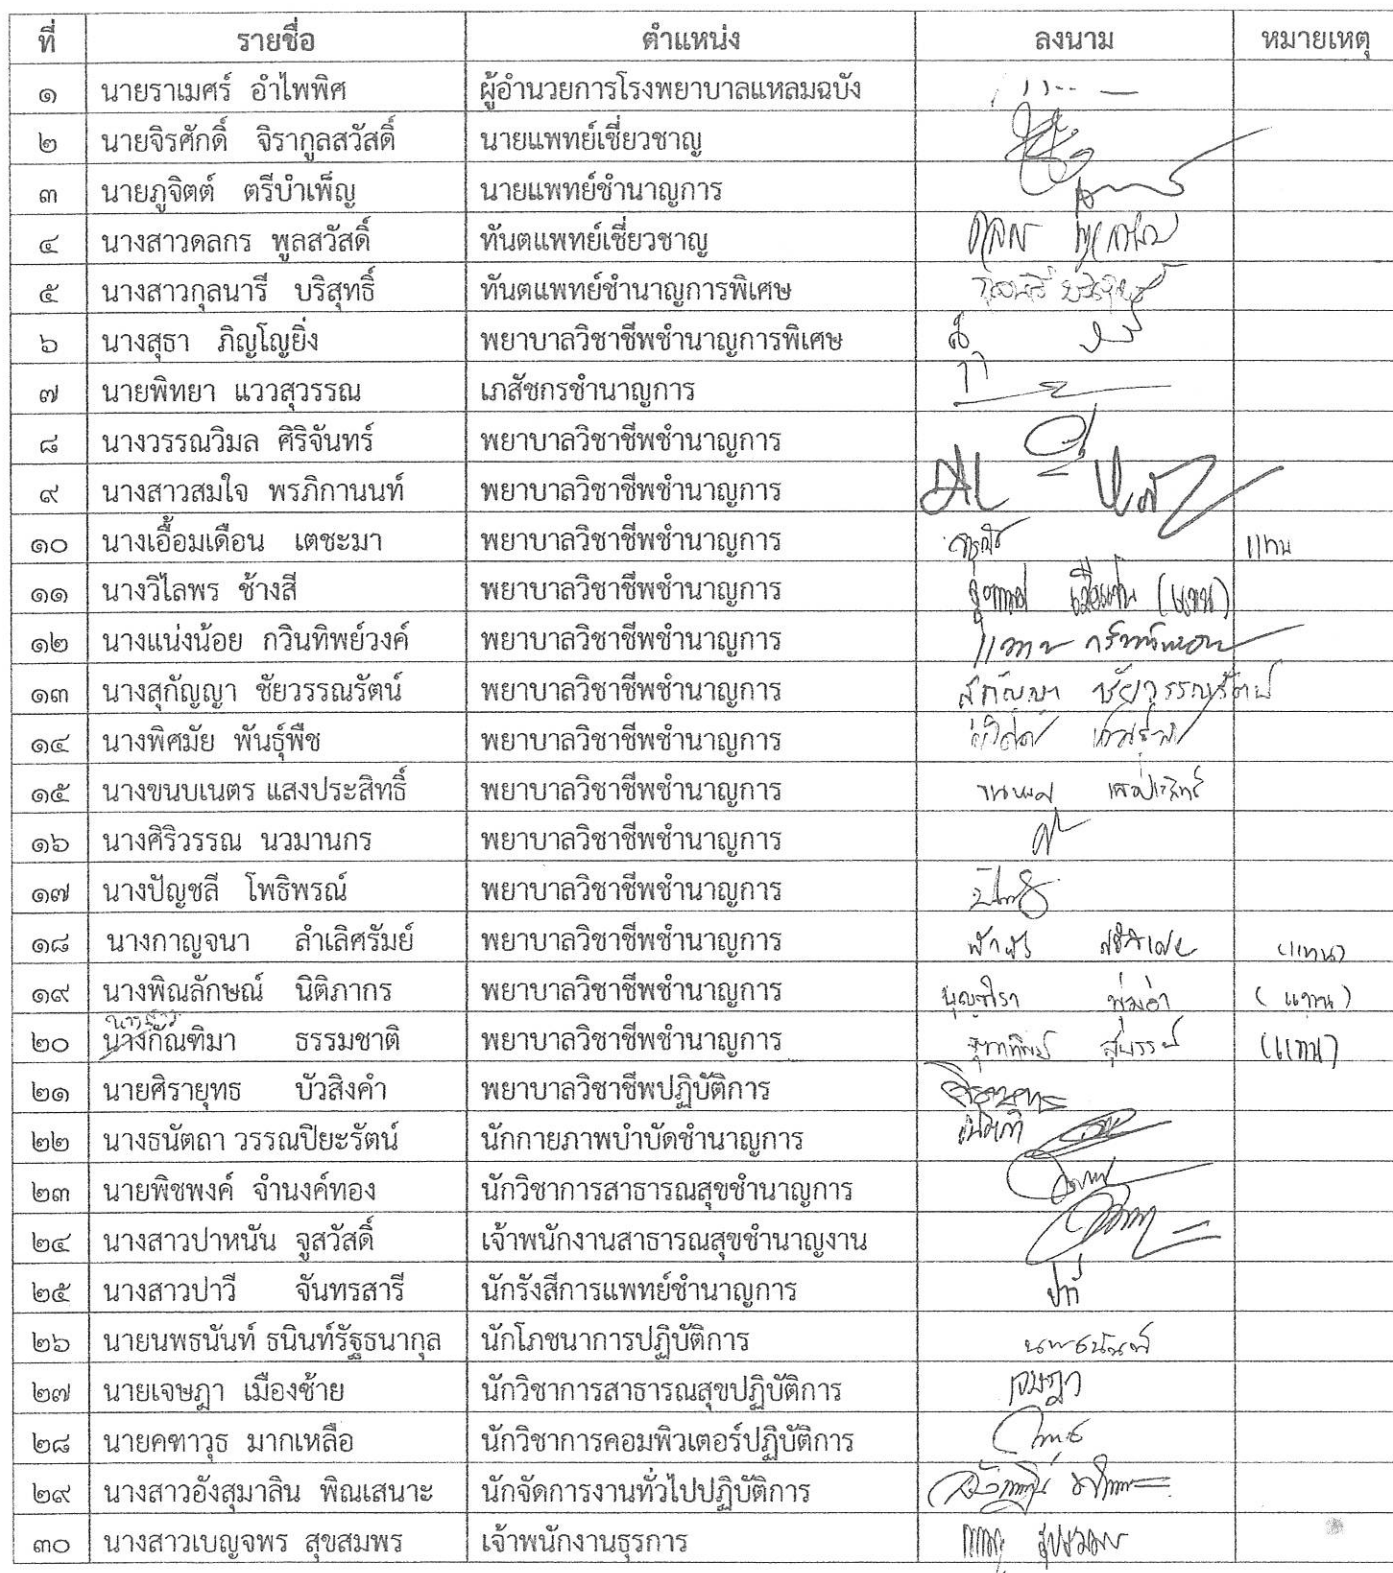 ที่ รายชื่อ ตำแหน่ง ลงนาม หมายเหตุ
๑ นายราเมศร์ อำไพพิศ ผู้อำนวยการโรงพยาบาลแหลมฉบัง
๒ นายจิรศักดิ์ จิรากูลสวัสดิ์ นายแพทย์เชี่ยวชาญ
๓ นายภูจิตต์ ตรีบำเพ็ญ นายแพทย์ชำนาญการ
๔ นางสาวดลกร พูลสวัสดิ์ ทันตแพทย์เชี่ยวชาญ
๕ นางสาวกุลนารี บริสุทธิ์ ทันตแพทย์ชำนาญการพิเศษ
๖ นางสุธา ภิญโญยิ่ง พยาบาลวิชาชีพชำนาญการพิเศษ
๗ นายพิทยา แววสุวรรณ เภสัชกรชำนาญการ
๘ นางวรรณวิมล ศิริจันทร์ พยาบาลวิชาชีพชำนาญการ
๙ นางสาวสมใจ พรภิกานนท์ พยาบาลวิชาชีพชำนาญการ
๑๐ นางเอื้อมเดือน เตชะมา พยาบาลวิชาชีพชำนาญการ แทน
๑๑ นางวิไลพร ช้างสี พยาบาลวิชาชีพชำนาญการ (แทน)
๑๒ นางแน่งน้อย กวินทิพย์วงค์ พยาบาลวิชาชีพชำนาญการ
๑๓ นางสุกัญญา ชัยวรรณรัตน์ พยาบาลวิชาชีพชำนาญการ สุกัญญา ชัยวรรณรัตน์
๑๔ นางพิศมัย พันธุ์พืช พยาบาลวิชาชีพชำนาญการ
๑๕ นางขนบเนตร แสงประสิทธิ์ พยาบาลวิชาชีพชำนาญการ
๑๖ นางศิริวรรณ นวมานกร พยาบาลวิชาชีพชำนาญการ
๑๗ นางปัญชลี โพธิพรณ์ พยาบาลวิชาชีพชำนาญการ
๑๘ นางกาญจนา ลำเลิศรัมย์ พยาบาลวิชาชีพชำนาญการ (แทน)
๑๙ นางพิณลักษณ์ นิติภากร พยาบาลวิชาชีพชำนาญการ (แทน)
นางสาว
๒๐ นางกัณฑิมา ธรรมชาติ พยาบาลวิชาชีพชำนาญการ (แทน)
๒๑ นายศิรายุทธ บัวสิงคำ พยาบาลวิชาชีพปฏิบัติการ
๒๒ นางธนัตถา วรรณปิยะรัตน์ นักกายภาพบำบัดชำนาญการ
๒๓ นายพิชพงค์ จำนงค์ทอง นักวิชาการสาธารณสุขชำนาญการ
๒๔ นางสาวปาหนัน จูสวัสดิ์ เจ้าพนักงานสาธารณสุขชำนาญงาน
๒๕ นางสาวปาวี จันทรสารี นักรังสีการแพทย์ชำนาญการ ปาวี
๒๖ นายนพธนันท์ ธนินท์รัฐธนากุล นักโภชนาการปฏิบัติการ นพธนันท์
๒๗ นายเจษฎา เมืองช้าย นักวิชาการสาธารณสุขปฏิบัติการ เจษฎา
๒๘ นายคฑาวุธ มากเหลือ นักวิชาการคอมพิวเตอร์ปฏิบัติการ
๒๙ นางสาวอังสุมาลิน พิณเสนาะ นักจัดการงานทั่วไปปฏิบัติการ
๓๐ นางสาวเบญจพร สุขสมพร เจ้าพนักงานธุรการ